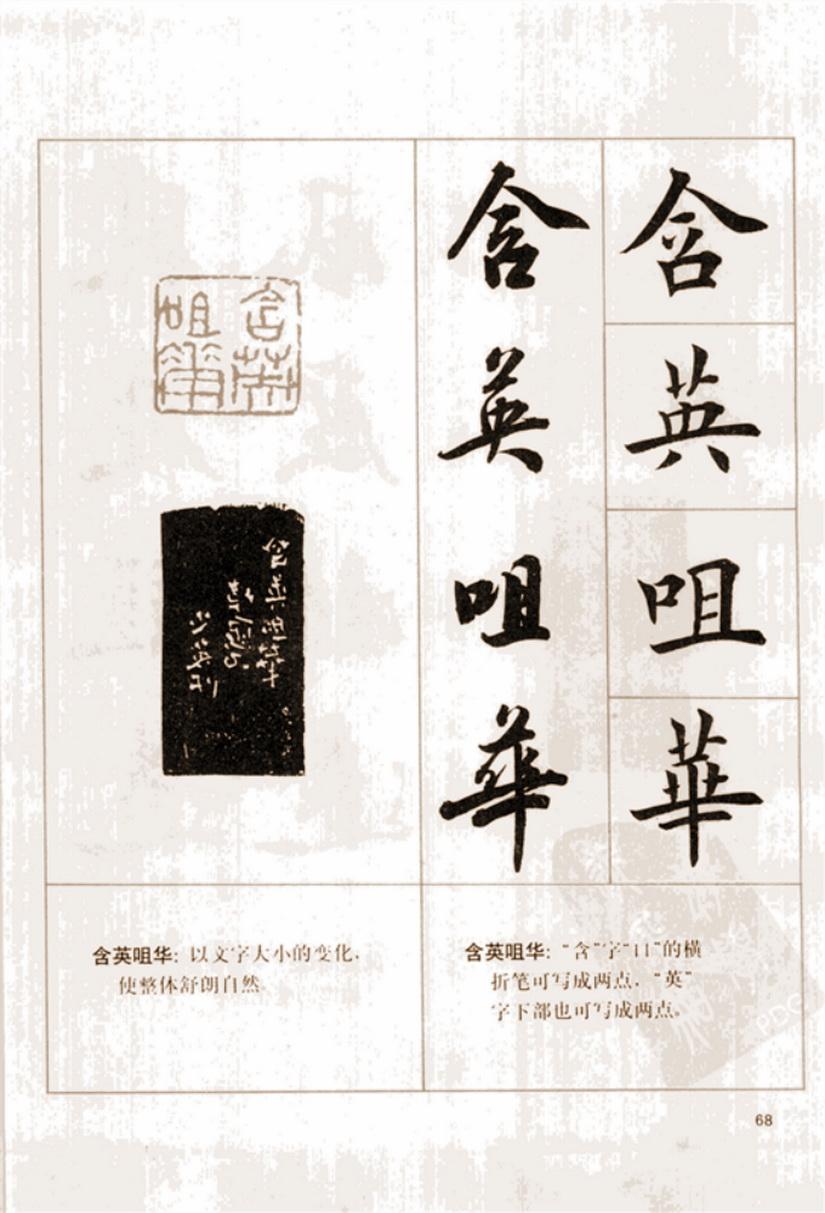 含英咀華
含
英
咀
華
含英
咀華
含英咀華
含英咀华：以文字大小的变化，
使整体舒朗自然。
含英咀华：“含”字“口”的横
折笔可写成两点，“英”
字下部也可写成两点。
68
PDG